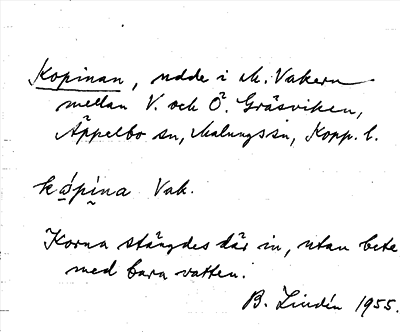 Kopinan, udde i M. Vakern
mellan V. och Ö. Gräsviken,
Äppelbo sn, Malungs sn, Kopp. l.
kópina Vak.
Korna stängdes där in, utan bete
med bara vatten.
B. Lindén 1955.